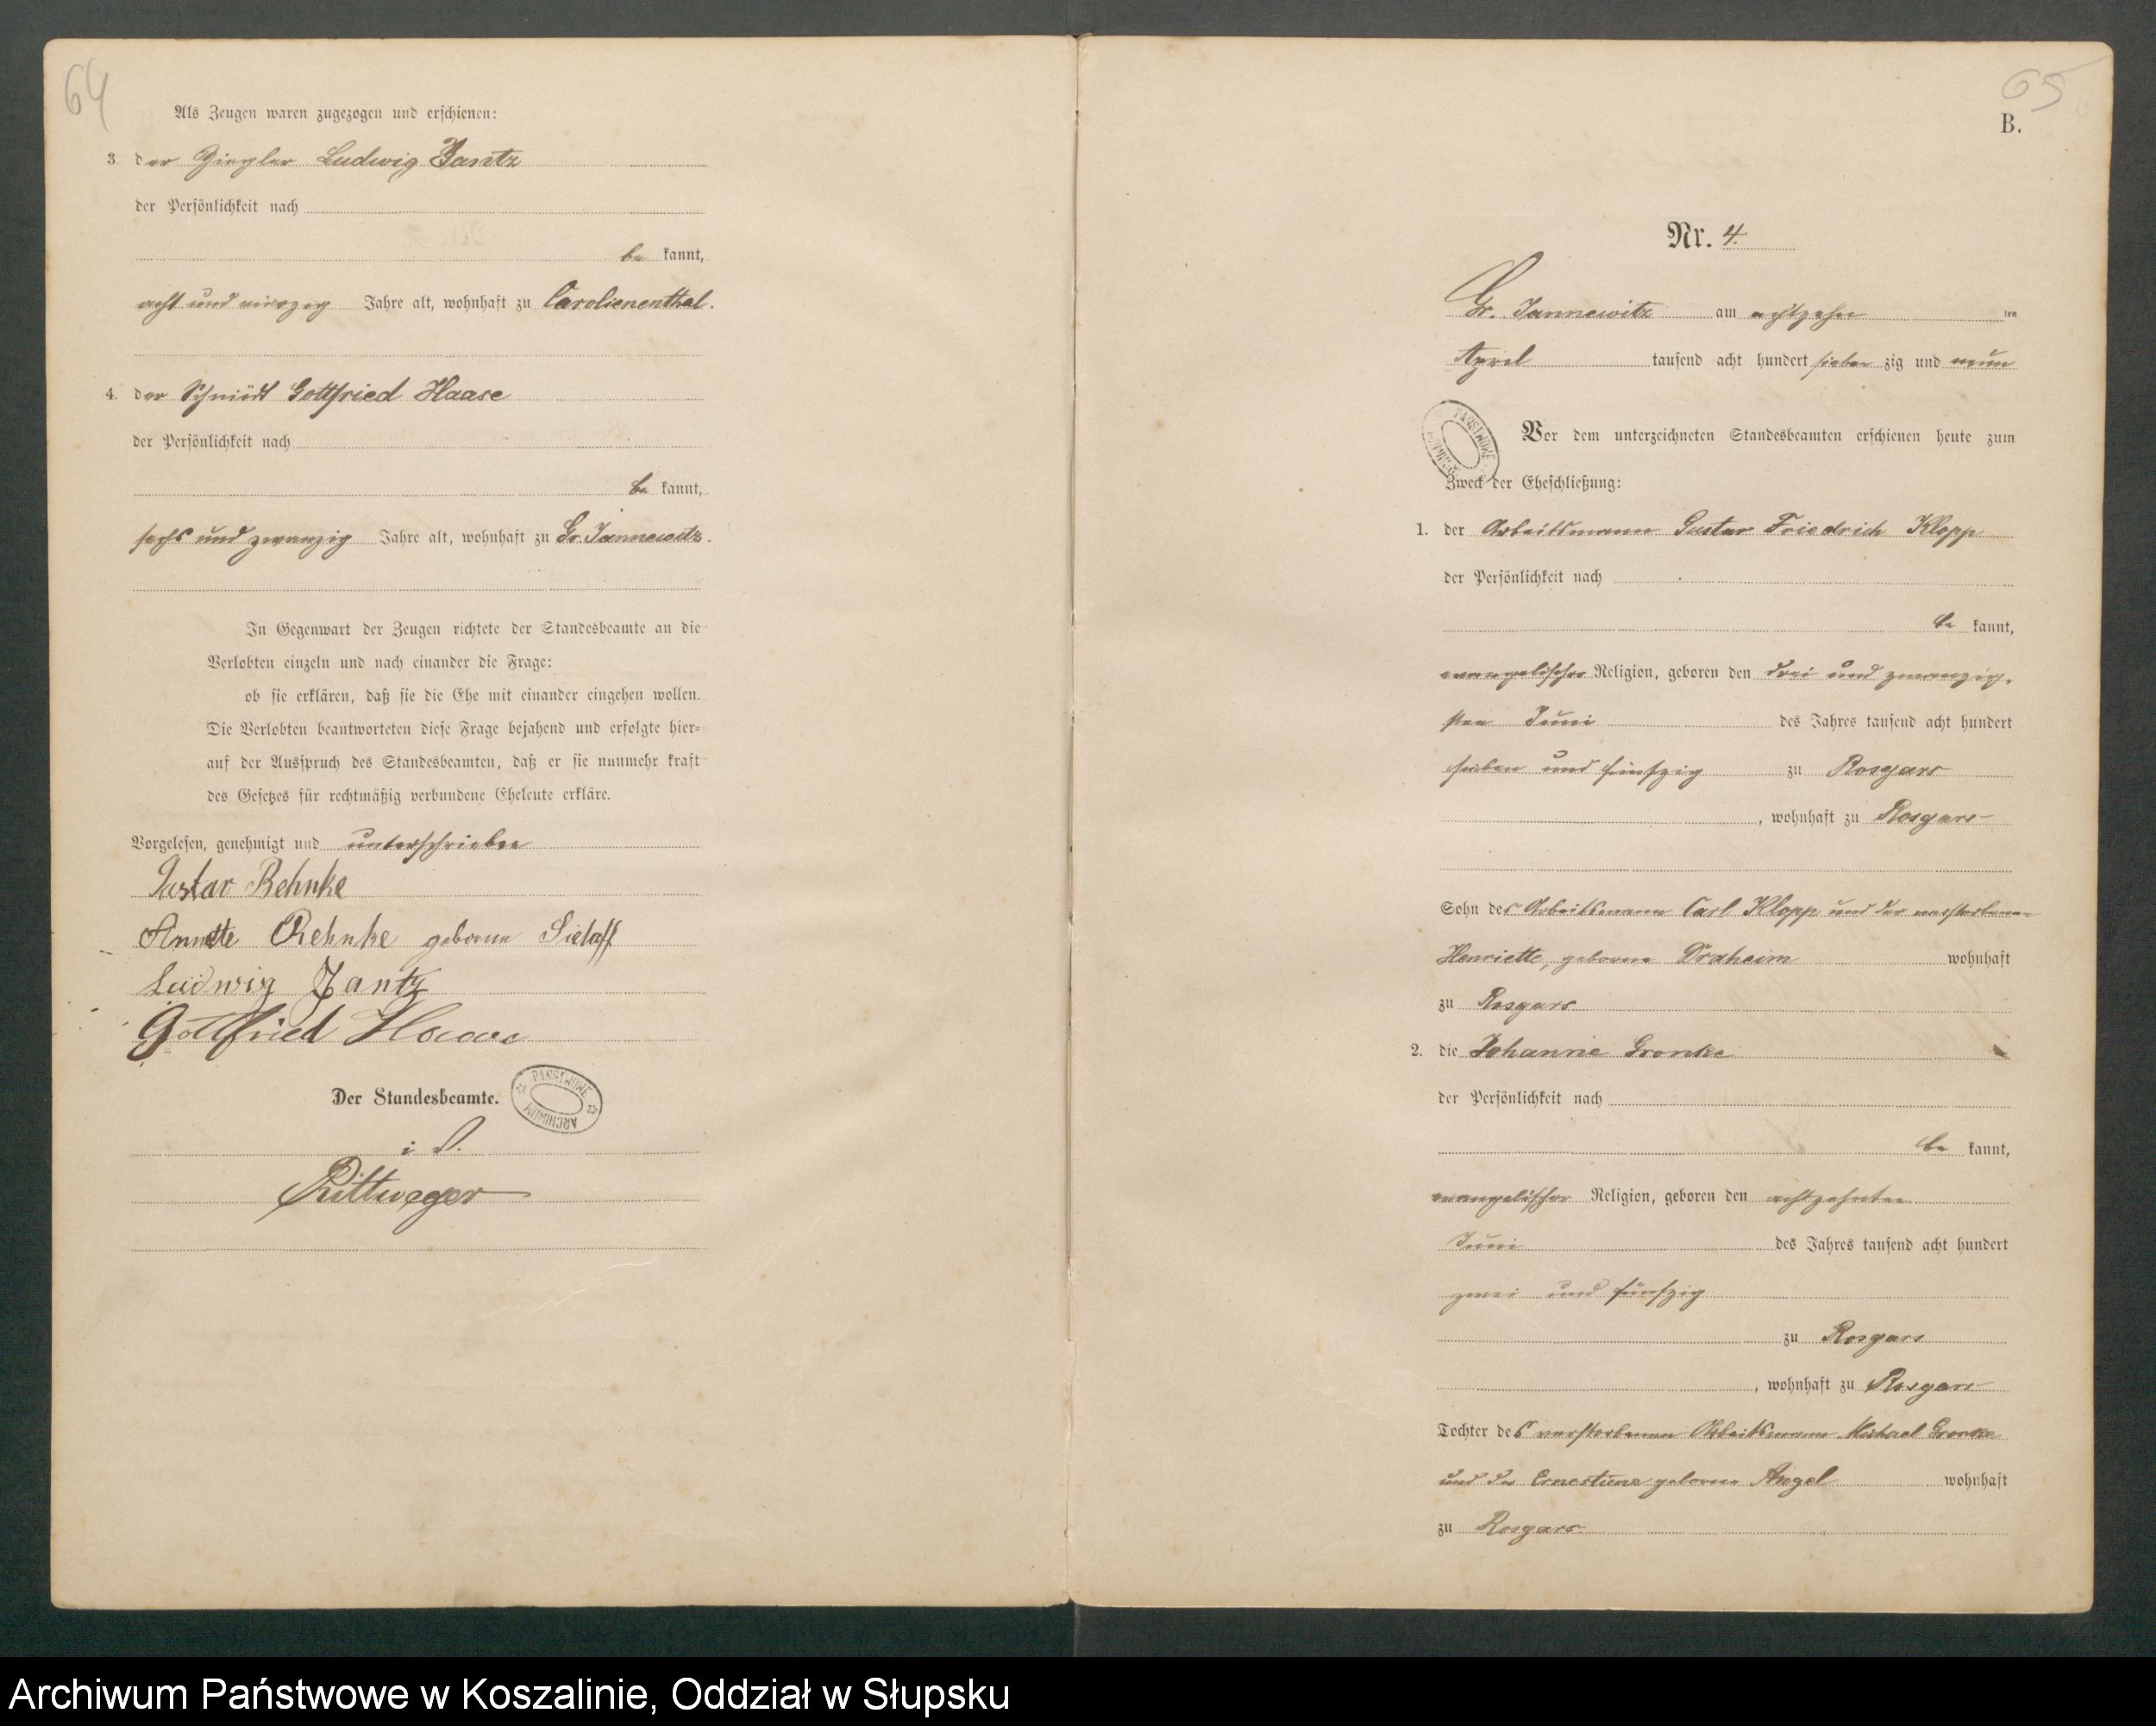 64
Als Zeugen waren zugezogen und erschienen:
3. der Ziegler Ludwig Jantz
der Persönlichkeit nach
be kannt,
acht und vierzig Jahre alt, wohnhaft zu Carolienenthal.
4. der Schmidt Gottfried Haase
der Persönlichkeit nach
be kannt,
sechs und zwanzig Jahre alt, wohnhaft zu Gr. Jannewitz.
In Gegenwart der Zeugen richtete der Standesbeamte an die
Verlobten einzeln und nach einander die Frage:
ob sie erklären, daß sie die Ehe mit einander eingehen wollen.
Die Verlobten beantworteten diese Frage bejahend und erfolgte hier-
auf der Ausspruch des Standesbeamten, daß er sie nunmehr kraft
des Gesetzes für rechtmäßig verbundene Eheleute erkläre.
Vorgelesen, genehmigt und unterschrieben
Gustav Behnke
Behnke geborne Sielaff
Ludwig Jantz
Gottfried Haase
Der Standesbeamte.
PAŃSTWOWE ARCHIWUM
i. V.
Rittweger
65
B.
Nr. 4.
Gr. Jannewitz am achtzehn ten
April tausend acht hundert sieben zig und neun
PAŃSTWOWE ARCHIWUM
Vor dem unterzeichneten Standesbeamten erschienen heute zum
Zweck der Eheschließung:
1. der Arbeitsmann Gustav Friedrich Klopp
der Persönlichkeit nach
be kannt,
evangelischer Religion, geboren den drei und zwanzig-
sten Juni des Jahres tausend acht hundert
sieben und fünfzig zu Rosgars
, wohnhaft zu Rosgars
Sohn des Arbeitsmann Carl Klopp und der verstorbenen
Henriette, geborene Draheim wohnhaft
zu Rosgars
2. die Johanne Gronke
der Persönlichkeit nach
be kannt,
evangelischer Religion, geboren den achtzehnten
Juni des Jahres tausend acht hundert
zwei und fünfzig
zu Rosgars
, wohnhaft zu Rosgars
Tochter des verstorbenen Arbeitsmann Michael Gronke
und der Ernestiene geborene Angel wohnhaft
zu Rosgars
Archiwum Państwowe w Koszalinie, Oddział w Słupsku